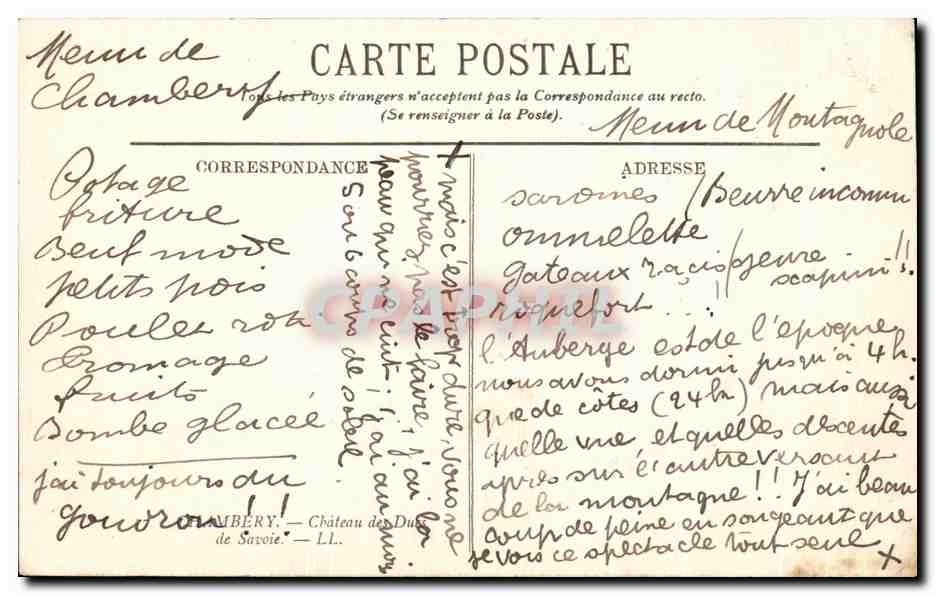 Menu de
Chambery
CARTE POSTALE
Tous les Pays étrangers n'acceptent pas la Correspondance au recto.
(Se renseigner à la Poste).
Menu de Montagnole
CORRESPONDANCE
ADRESSE
Potage
friture
Beuf mode
petits pois
Poulet roti
Fromage
fruits
Bombe glacée
j'ai toujours du
goudron!!
CHAMBÉRY. — Château des Ducs
de Savoie. — LL.
sardines / Beurre incommu
ommelette
gateaux racis / genre
scapini!!
roquefort ... !!
l'Auberge est de l'epoque,
nous avons dormi jusqu'à 4h.
que de côtes (24 km) mais aussi
quelle vue et quelles descentes
après sur l'autre versant
de la montagne!! J'ai beau
coup de peine en songeant que
je vois ce spectacle tout seul +
+ mais c'est trop dure, vous ne
pourriez pas le faire, j'ai la
peau qui me cuit! j'ai au moins
5 ou 6 coups de soleil
CPAPHIL